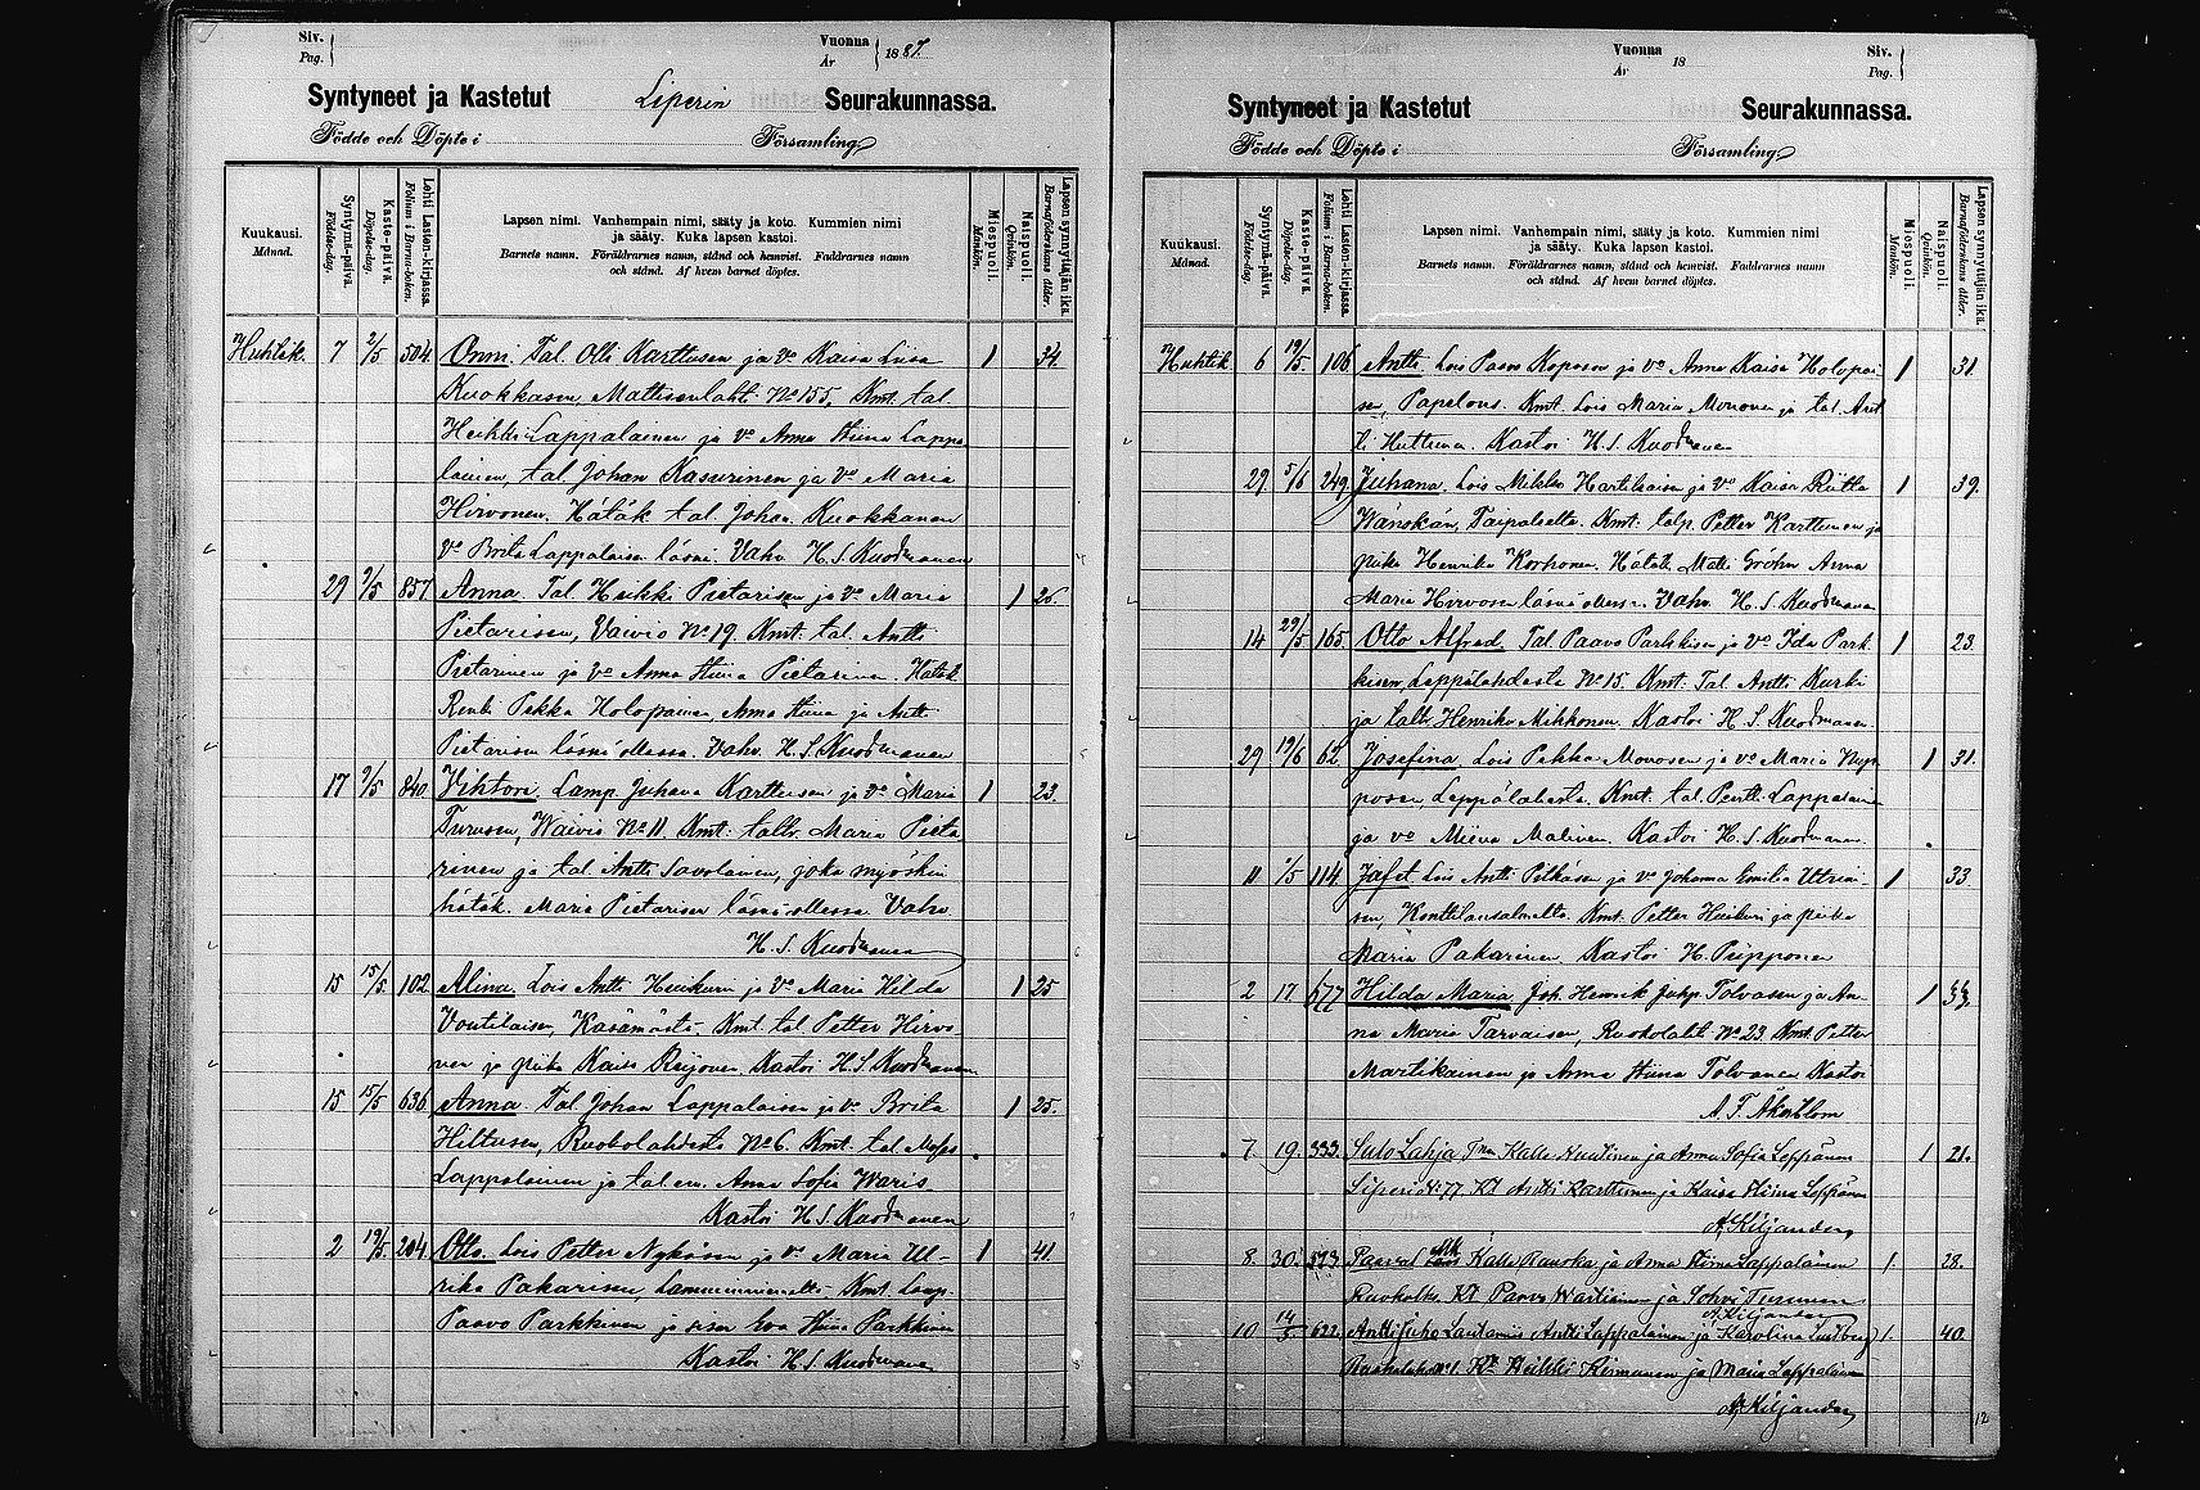 Siv.
Pag.
Vuonna
År
1887.
Syntyneet ja Kastetut Liperin Seurakunnassa.
Födde och Döpte i Församling.
Kuukausi.
Månad.
Syntymä-päivä.
Födelse-dag.
Kaste-päivä.
Döpelse-dag.
Lehti Lasten-kirjassa.
Folium i Barna-boken.
Lapsen nimi. Vanhempain nimi, sääty ja koto. Kummien nimi
ja sääty. Kuka lapsen kastoi.
Barnets namn. Föräldrarnes namn, stånd och hemvist. Faddrarnes namn
och stånd. Af hvem barnet döptes.
Miespuoli.
Mankön.
Naispuoli.
Qvinkön.
Lapsen synnyttäjän ikä.
Barnaföderskans ålder.
Huhtik. 7 2/5 504. Onni. Tal. Olli Karttusen ja vo Kaisa Liisa 1 34.
Kuokkasen, Mattisenlahti No 155, Kmt. tal.
Heikki Lappalainen ja vo Anna Stiina Lappa-
lainen, tal. Johan Kasurinen ja vo Maria
Hirvonen. Hätäk. tal. Johan Kuokkanen
vo Brita Lappalaisen läsnä. Vahv. H. S. Kuodmanen
29 9/5 857 Anna. Tal. Heikki Pietarisen ja vo Maria 1 26.
Pietarisen, Vaivio No 19. Kmt. tal. Antti
Pietarinen ja vo Anna Stiina Pietarinen. Hätäk.
Renki Pekka Holopainen, Anna Stiina ja Antti
Pietarisen läsnä ollessa. Vahv. H. S. Kuodmanen
17 9/5 840 Vihtori. Lamp. Juhana Karttusen ja vo Maria 1 23.
Turusen, Waivio No 11. Kmt: taltr. Maria Pieta-
rinen ja tal. Antti Savolainen, joka myöskin
hätäk. Maria Pietarisen läsnä ollessa. Vahv.
H. S. Kuodmanen
15 15/5. 102. Alina. Lois Antti Huikurin ja vo Maria Hilda 1 25
Voutilaisen, Käsämästä. Kmt. tal. Petter Hirvo-
nen ja piika Kaisa Reijonen. Kastoi H. S. Kuodmanen
15 15/5 636 Anna. Tal. Johan Lappalaisen ja vo Brita 1 25.
Hiltusen, Ruokolahdesta No 6. Kmt. tal. Moses
Lappalainen ja tal. em. Anna Sofia Waris.
Kastoi H. S. Kuodmanen
2 19/5. 204. Otto. Lois Petter Nykäsen ja vo Maria Ul- 1 41.
rika Pakarisen, Lamminniemeltä. Kmt. Lamp.
Paavo Parkkinen ja sisar Eva Stiina Parkkinen
Kastoi H. S. Kuodmanen
Vuonna
År
18
Siv.
Pag.
Syntyneet ja Kastetut Seurakunnassa.
Födde och Döpte i Församling.
Kuukausi.
Månad.
Syntymä-päivä.
Födelse-dag.
Kaste-päivä.
Döpelse-dag.
Lehti Lasten-kirjassa.
Folium i Barna-boken.
Lapsen nimi. Vanhempain nimi, sääty ja koto. Kummien nimi
ja sääty. Kuka lapsen kastoi.
Barnets namn. Föräldrarnes namn, stånd och hemvist. Faddrarnes namn
och stånd. Af hvem barnet döptes.
Miespuoli.
Mankön.
Naispuoli.
Qvinkön.
Lapsen synnyttäjän ikä.
Barnaföderskans ålder.
Huhtik. 6 19/5. 106 Antti. Lois Paavo Koposen ja vo Anna Kaisa Holopai- 1 31.
sen, Papelons. Kmt. Lois Maria Mononen ja tal. Ant-
ti Huttunen. Kastoi H. S. Kuodmanen
29. 5/6 249. Juhana. Lois Mikko Hartikaisen ja vo Kaisa Riitta 1 39.
Wänskän, Taipaleelta. Kmt. talp. Petter Karttunen ja
piika Henrika Korhonen. Hätäk. Matti Gröhn Anna
Maria Hirvosen läsnä ollessa. Vahv. H. S. Kuodmanen
14 29/5 165. Otto Alfred. Tal. Paavo Parkkisen ja vo Ida Park- 1 23.
kisen, Leppälahdesta No 15. Kmt: Tal. Antti Kurki
ja taltr. Henrika Mikkonen. Kastoi H. S. Kuodmanen.
29 19/6 62. Josefina. Lois Pekka Monosen ja vo Maria Nup- 1 31.
posen, Leppälahesta. Kmt: tal. Pertti Lappalainen
ja vo Miina Malinen. Kastoi H. S. Kuodmanen.
11 1/5 114. Jafet. Lois Antti Pitkäsen ja vo Johanna Emilia Utriai- 1 33.
sen, Konttilansalmelta. Kmt. Petter Huikuri ja piika
Maria Pakarinen. Kastoi H. Piipponen
2 17 677 Hilda Maria Joh. Henrik Juhp. Tolvasen ja An- 1 33.
na Maria Tarvaisen, Ruokolaht. No 23. Kmt. Petter
Martikainen ja Anna Stiina Tolvanen Kastoi
A. F. Åkerblom
7. 19. 333. Sulo Lahja Kalle Nuutinen ja Anna Sofia Leppänen 1 21.
Liperi No 77. Kt Antti Karttunen ja Kaisa Stiina Leppänen
A. Kiljander
8. 30. 573 Paaval Kalle Ruuska ja Anna Stiina Lappalainen 1. 28.
Ruokolks. Kt Paavo Wartiainen ja Sohvi Turunen
A. Kiljander
10 14/5 622. Antti Juho Lautamies Antti Lappalainen ja Karolina Lindberg 1. 40.
Ruokolaks No 1. Kt Heikki Kinnunen ja Maria Lappalainen
A. Kiljander
12